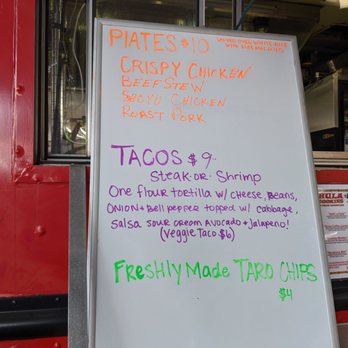 PlATES $10
SERVED OVER WHITE RICE
CRISPY CHICKEN
BEEF STEW
SHOYU CHICKEN
ROAST PORK
TACOS $9
STEAK OR Shrimp
One flour tortilla w/ cheese, Beans,
ONION + Bell pepper topped w/ cabbage,
Salsa sour cream AVOCADO + Jalapeño!
(Veggie Taco $6)
Freshly Made TARO CHIPS
$4